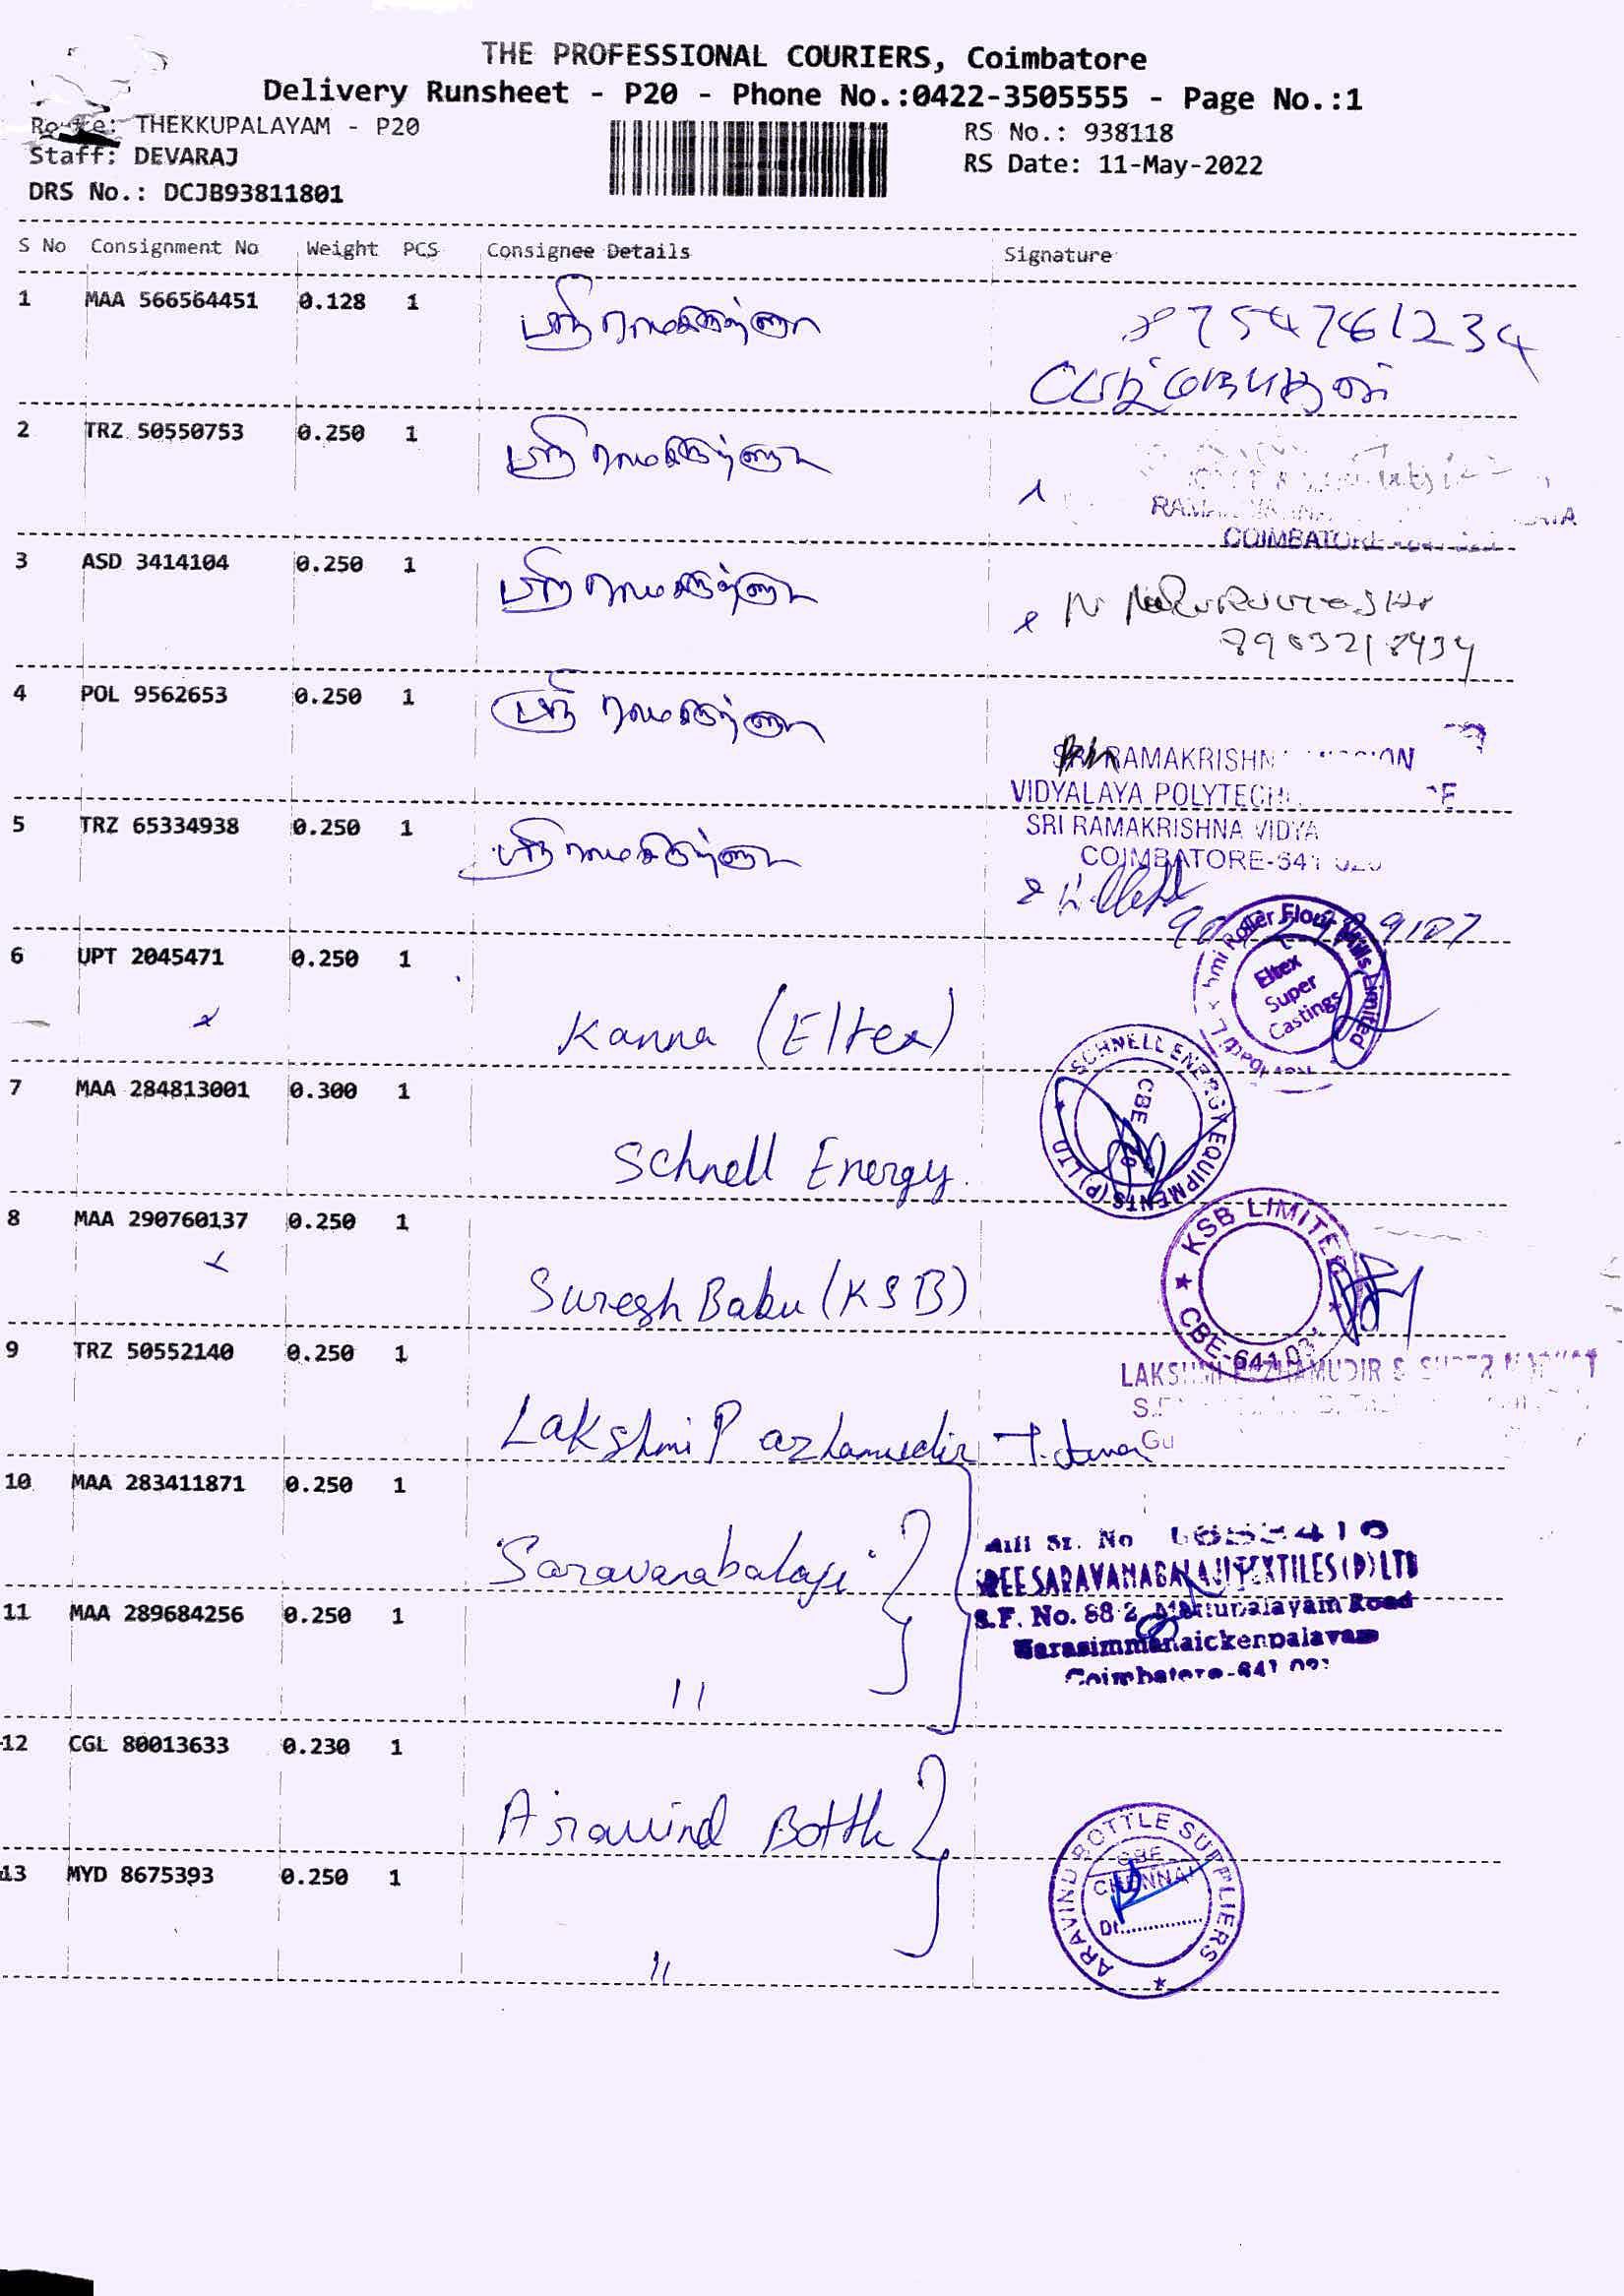 THE PROFESSIONAL COURIERS, Coimbatore
Delivery Runsheet - P20 - Phone No.:0422-3505555 - Page No.:1
Route: THEKKUPALAYAM - P20
RS No.: 938118
Staff: DEVARAJ
RS Date: 11-May-2022
DRS No.: DCJB93811801
S No Consignment No Weight PCS Consignee Details Signature
1 MAA 566564451 0.128 1 ஸ்ரீ ராமகிருஷ்ணா 8754761234
2 TRZ 50550753 0.250 1 ஸ்ரீ ராமகிருஷ்ணா
COIMBATORE
3 ASD 3414104 0.250 1 ஸ்ரீ ராமகிருஷ்ணா
4 POL 9562653 0.250 1 ஸ்ரீ ராமகிருஷ்ணா
SRI RAMAKRISHNA
VIDYALAYA POLYTECH
5 TRZ 65334938 0.250 1 ஸ்ரீ ராமகிருஷ்ணா
SRI RAMAKRISHNA VIDYA
COIMBATORE-641 020
6 UPT 2045471 0.250 1 Kanna (Eltex)
Roller Flour Mills Limited
Eltex
Super
Castings
7 MAA 284813001 0.300 1 Schnell Energy
SCHNELL ENERGY EQUIPMENTS (P) LTD
CBE
8 MAA 290760137 0.250 1 Suresh Babu (KSB)
KSB LIMITED
CBE-641 031
9 TRZ 50552140 0.250 1 Lakshmi Pazhamudir
LAKSHMI PAZHAMUDIR & SUPER MARKET
10 MAA 283411871 0.250 1 Saravanabalaji
SREE SARAVANABALAJI TEXTILES (P) LTD
11 MAA 289684256 0.250 1 11
S.F. No. 88 2, Mettupalayam Road
Narasimmanaickenpalayam
Coimbatore-641 031
12 CGL 80013633 0.230 1 Aravind Bottle
13 MYD 8675393 0.250 1 11
ARAVIND BOTTLE SUPPLIERS
CBE
CHENNAI
Dt.